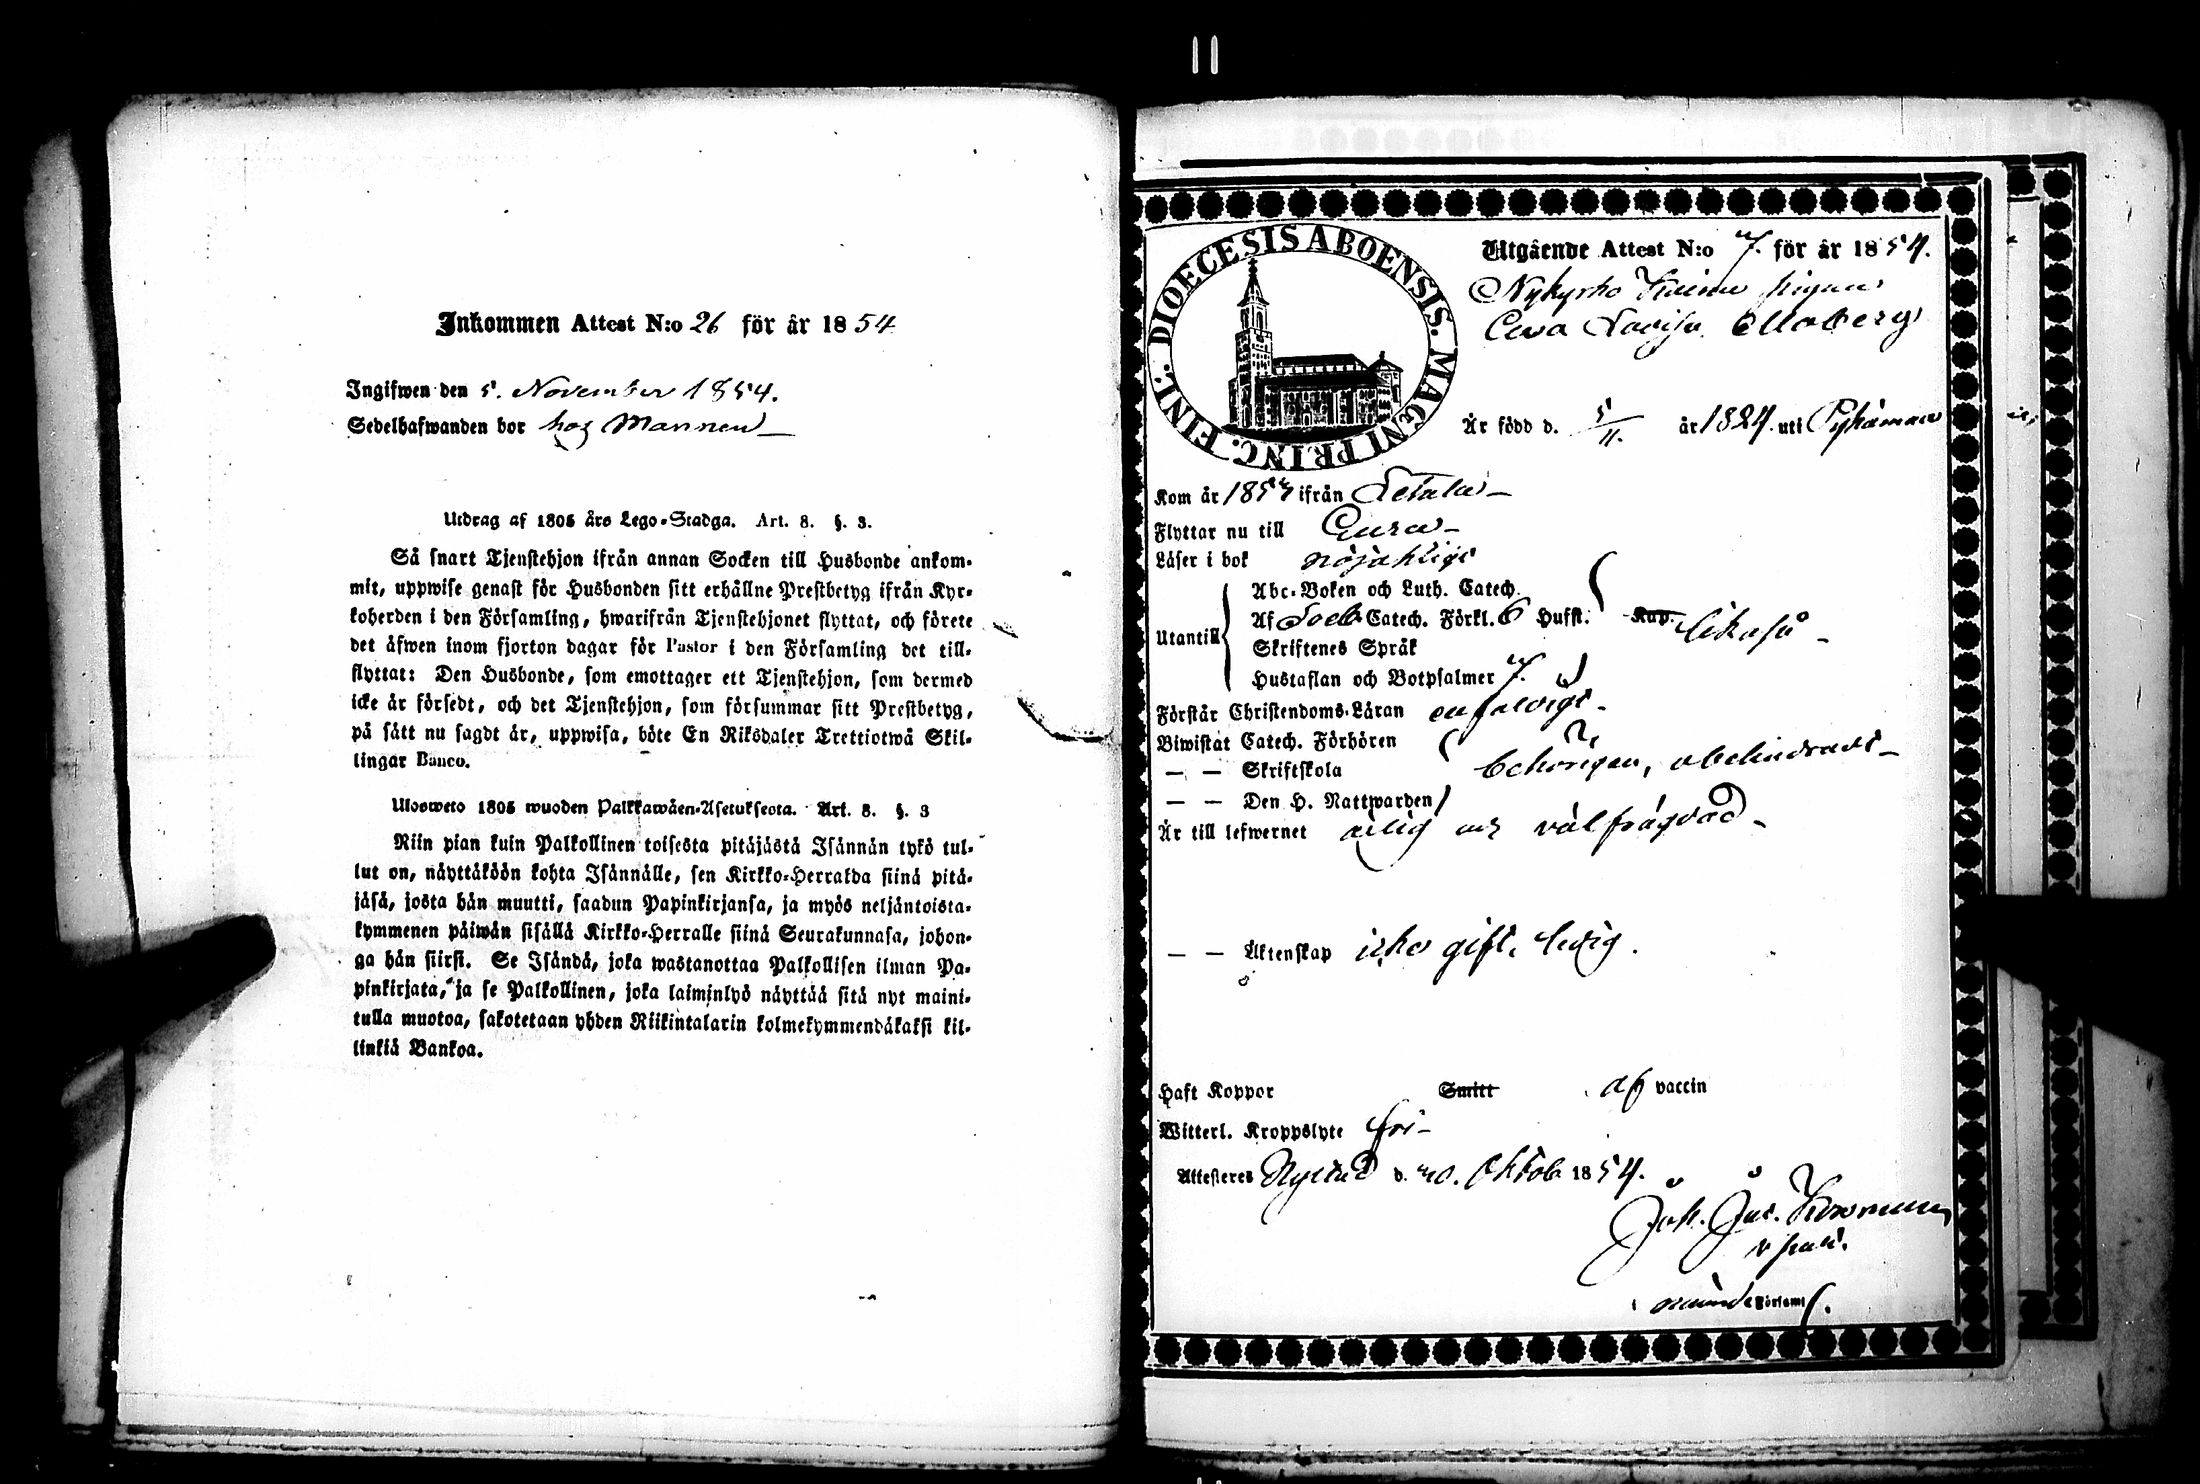 Inkommen Attest N:o 26 för år 1854
Ingifwen den 5. November 1854.
Sedelhafwanden bor hos Mannen
Utdrag af 1805 års Lego-Stadga. Art. 8. §. 3.
Så snart Tjenstehjon ifrån annan Socken till Husbonde ankom-
mit, uppwise genast för Husbonden sitt erhållne Prestbetyg ifrån Kyr-
koherden i den Församling, hwarifrån Tjenstehjonet flyttat, och förete
det äfwen inom fjorton dagar för Pastor i den Församling det till-
flyttat: Den Husbonde, som emottager ett Tjenstehjon, som dermed
icke är försedt, och det Tjenstehjon, som försummar sitt Prestbetyg,
på sätt nu sagdt är, uppwisa, böte En Riksdaler Trettiotwå Skil-
lingar Banco.
Ulosweto 1805 wuoden Palkkawäen-Asetuksesta. Art. 8. §. 3
Niin pian kuin Palkollinen toisesta pitäjästä Isännän tykö tul-
lut on, näyttäköön kohta Isännälle, sen Kirkko-Herralda siinä pitä-
jäsä, josta hän muutti, saadun Papinkirjansa, ja myös neljäntoista-
kymmenen päiwän sisällä Kirkko-Herralle siinä Seurakunnasa, johon-
ga hän siirsi. Se Isändä, joka wastanottaa Palkollisen ilman Pa-
pinkirjata, ja se Palkollinen, joka laiminlyö näyttää sitä nyt maini-
tulla muotoa, sakotetaan yhden Riikintalarin kolmekymmendäkaksi kil-
linkiä Bankoa.
DIOECESIS ABOENSIS. MAGNI PRINC. FINL.
Utgående Attest N:o 7. för år 1854.
Nykyrko pigan
Ewa Lovisa
Är född d. 5/11. år 1824. uti Pyhämaa
Kom år 1853 ifrån Letala
Flyttar nu till Eura
Läser i bok nöjaktigt
Utantill
Abc-Boken och Luth. Catech.
Af Catech. Förkl. 6 Hufst. Kap. likaså
Skriftenes Språk
Hustaflan och Botpsalmer 7.
Förstår Christendoms-Läran enfaldigt
Biwistat Catech. Förhören
— — Skriftskola behörigen, obehindrad
— — Den H. Nattwarden
Är till lefwernet ärlig och välfrägdad
— — Äktenskap icke gift, ledig.
Haft Koppor Smitt af vaccin
Witterl. Kroppslyte fri
Attesteras Nystad d. 20. Oktob. 1854.
Joh. Jac.
Församl.